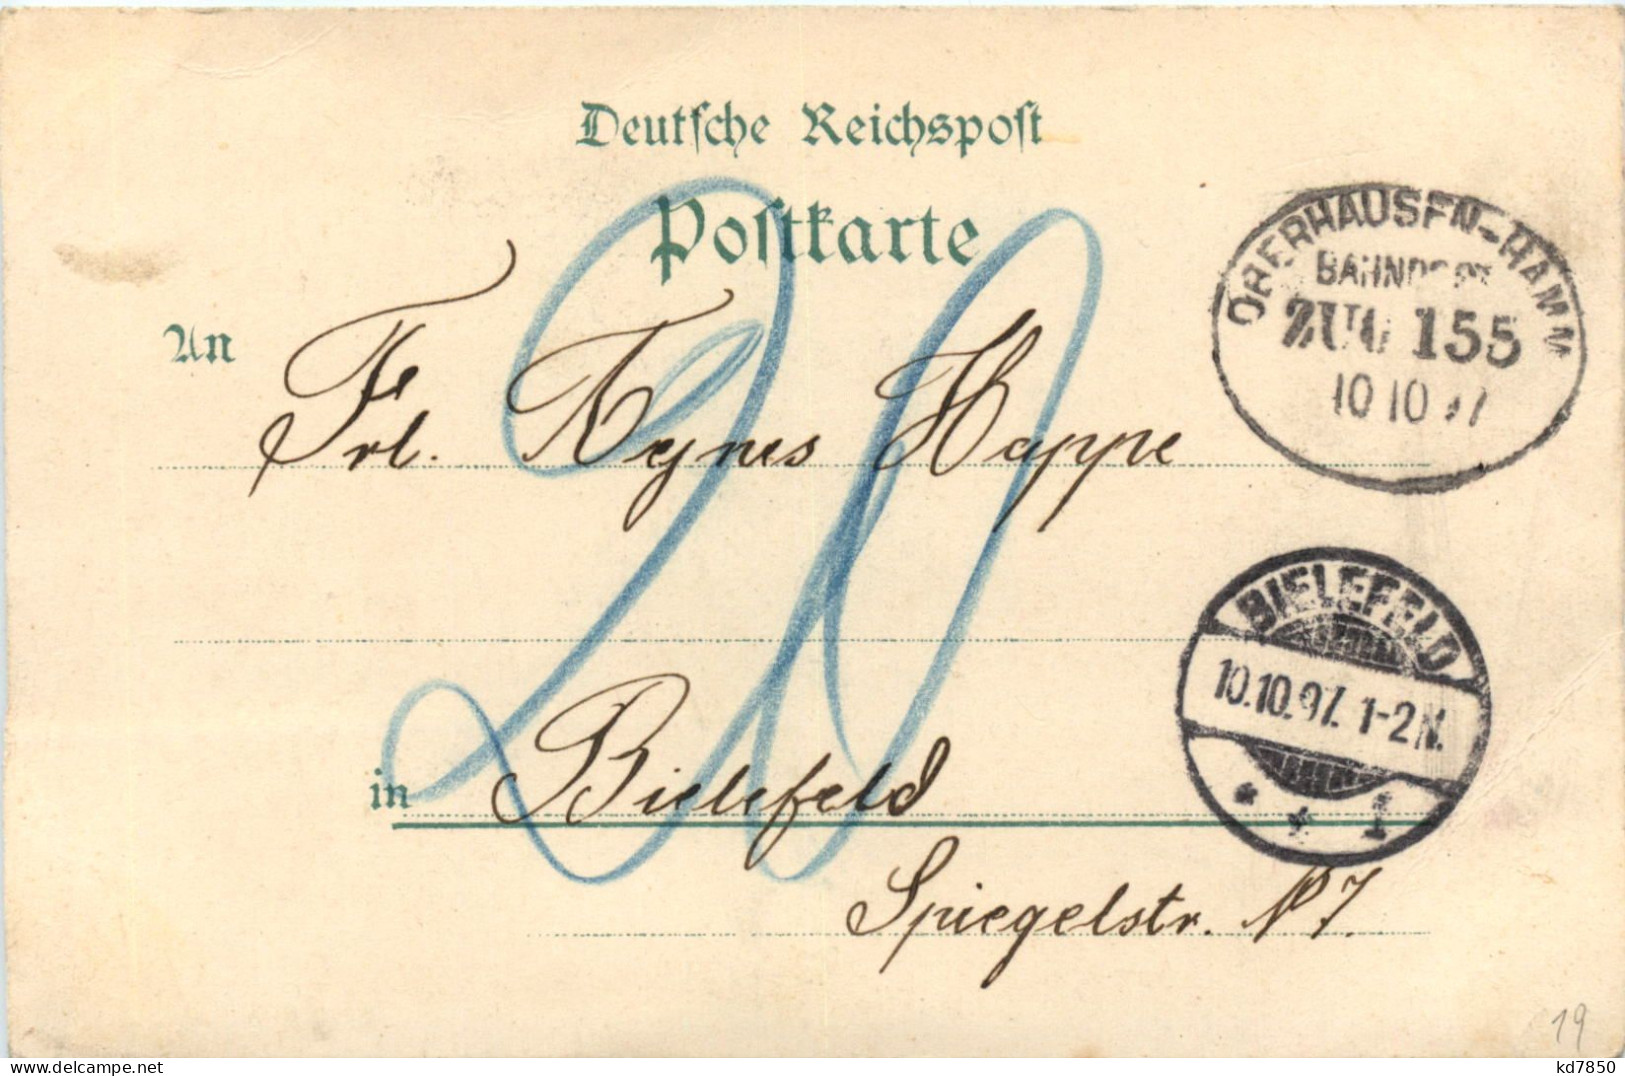 Deutsche Reichspost
Postkarte
An
Frl. Agnes Hoppe
in Bielefeld
Spiegelstr. No 7.
20
OBERHAUSEN-HAMM
BAHNPOST
ZUG 155
10 10 97
BIELEFELD
10.10.97. 1-2N.
* * 1
19
delcampe.net
kd7850